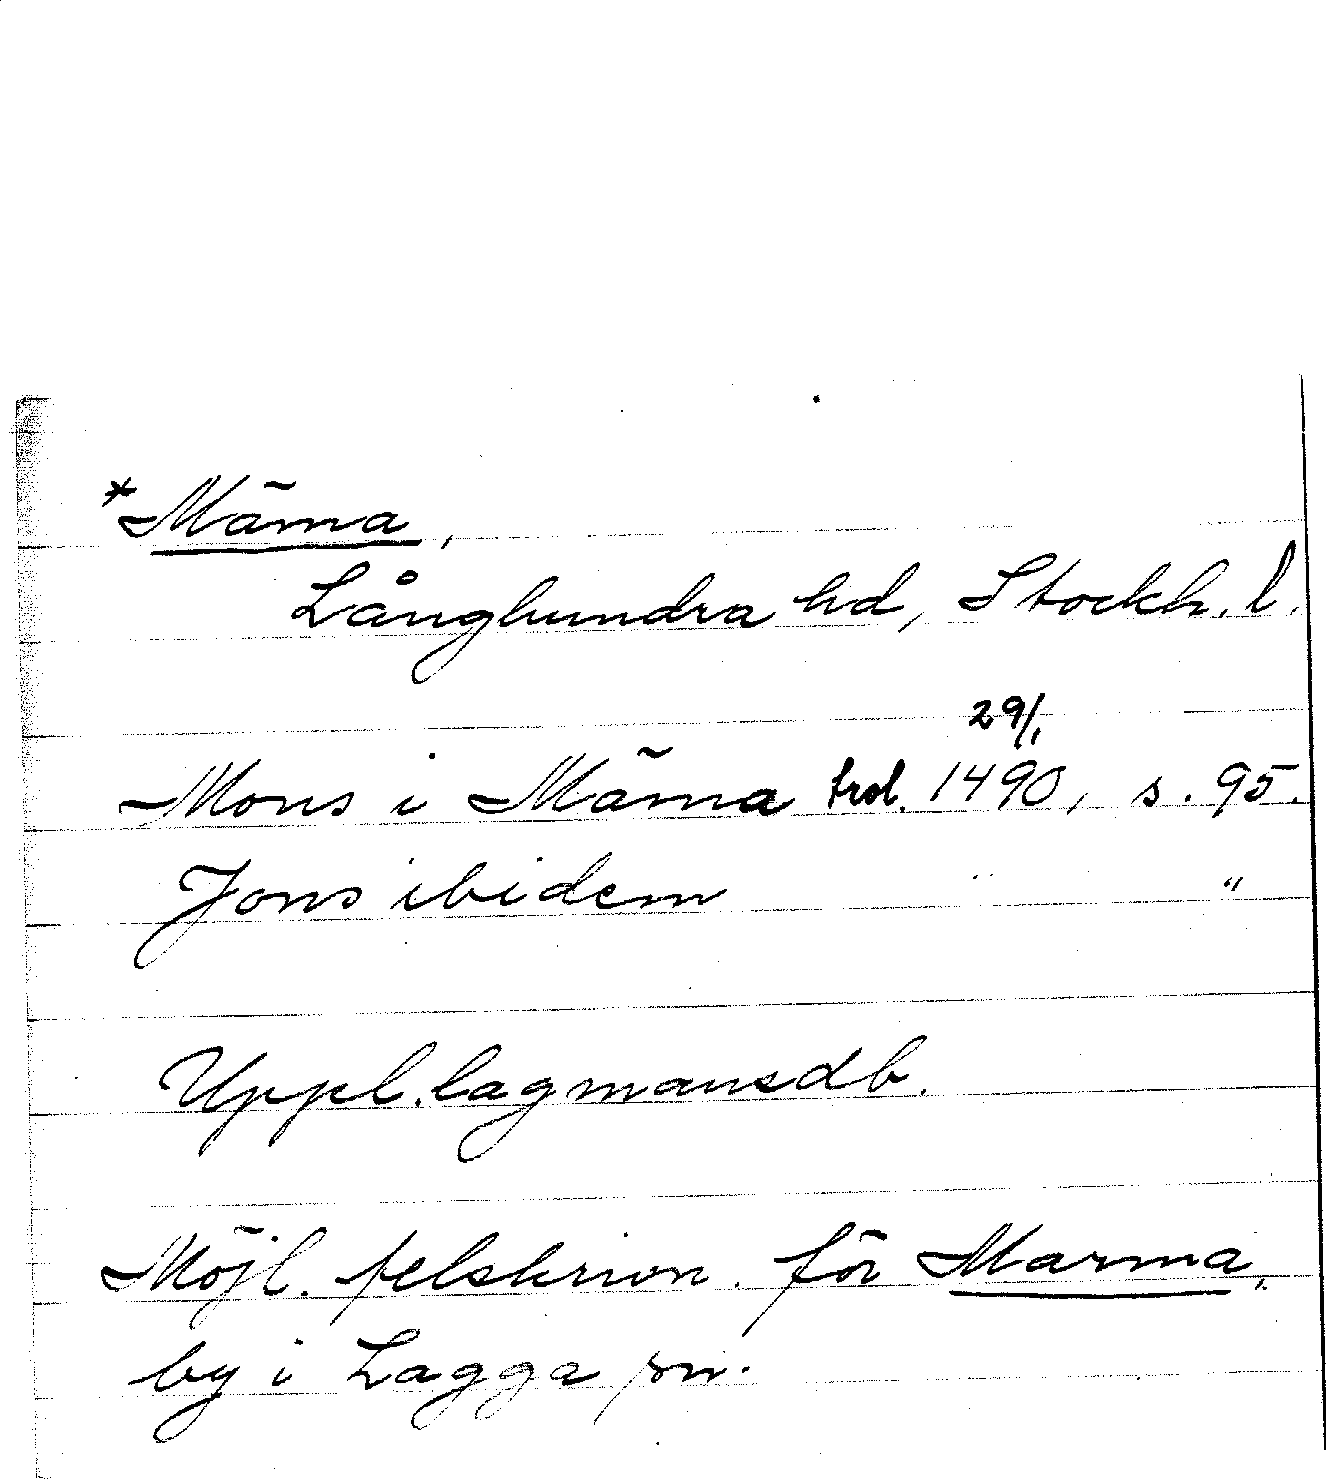 *Mäma,
Långhundra hd, Stockh. l.
29/1
Mons i Mäma trol. 1490, s. 95.
Jons ibidem " "
Uppl. lagmansdb.
Möjl. felskrivn. för Marma,
by i Lagga sn.